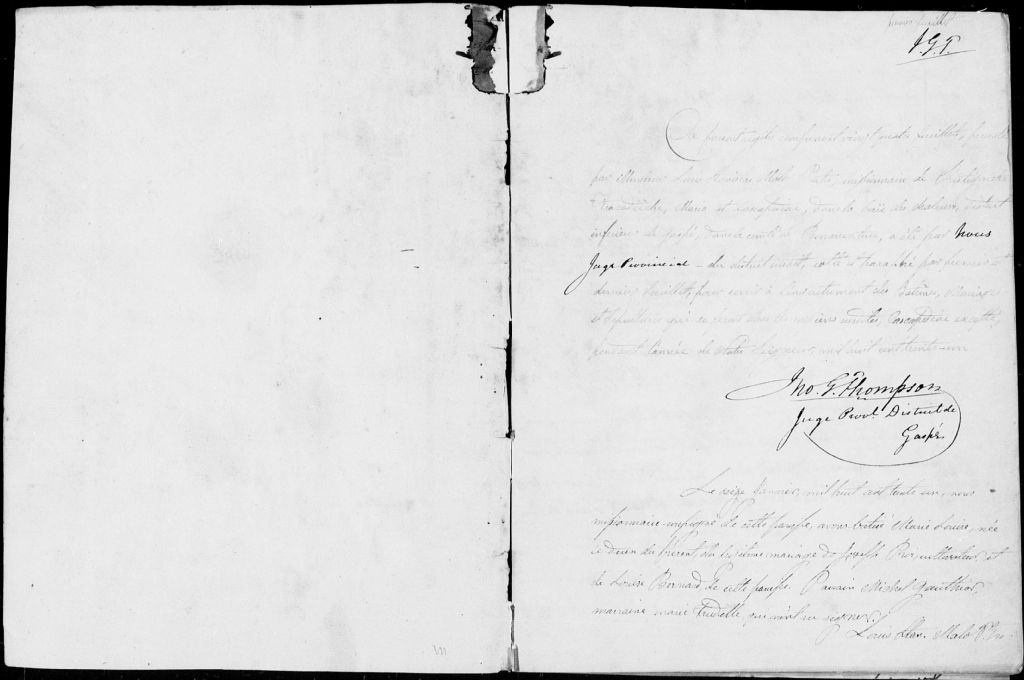 premier feuillet
J. G. T.
Ce présent registre contenant vingt quatre feuillets, presenté
par Monsieur Louis Stanislas Malo Prêtre, missionnaire de Ristigouche
Tracadièche, Maria et Cascapédiac, dans la baie des chaleurs, district
inférieur de gaspé, dans le comté de Bonaventure, a été par Nous
Juge Provincial du district susdit, cotté et paraphé par premier et
dernier feuillet, pour servir à l'enregistrement des Batêmes, Mariages
et Sépultures qui se feront dans les missions susdites, Cascapédiac excepté,
pendant l'année de Notre Seigneur, mil huit cent trente un
Jno. G. Thompson
Juge Provl. District de
Gaspé
Le seize Janvier, mil huit cent trente un, nous
missionnaire soussigné de cette paroisse, avons batisé Marie Louise, née
le du présent, du légitime mariage de Joseph Roi, cultivateur, et
de Louise Bernard de cette paroisse. Parrain Michel Gauthier,
marraine marie, qui n'ont su signer.
Louis Stan. Malo Ptre